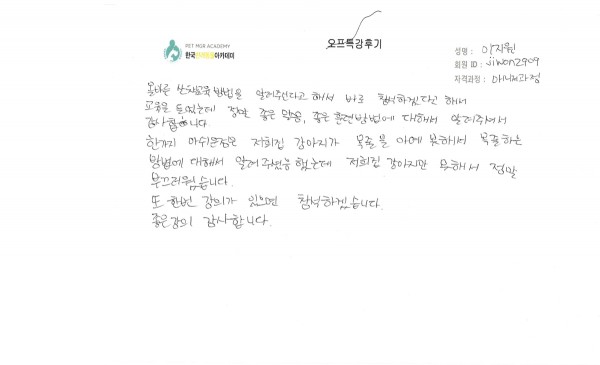 PET MGR ACADEMY
한국반려동물아카데미
오프특강후기
성명 : 안지원
회원 ID : jiwon2909
자격과정 : 매니저과정
올바른 산책교육 방법을 알려주신다고 해서 바로 참석하겠다고 해서
교육을 들었는데 정말 좋은 말씀, 좋은 훈련방법에 대해서 알려주셔서
감사합니다.
한가지 아쉬운점은 저희집 강아지가 목줄을 아예 못해서 목줄하는
방법에 대해서 알려주셨음 했는데 저희집 강아지만 못해서 정말
부끄러웠습니다.
또 한번 강의가 있으면 참석하겠습니다.
좋은강의 감사합니다.